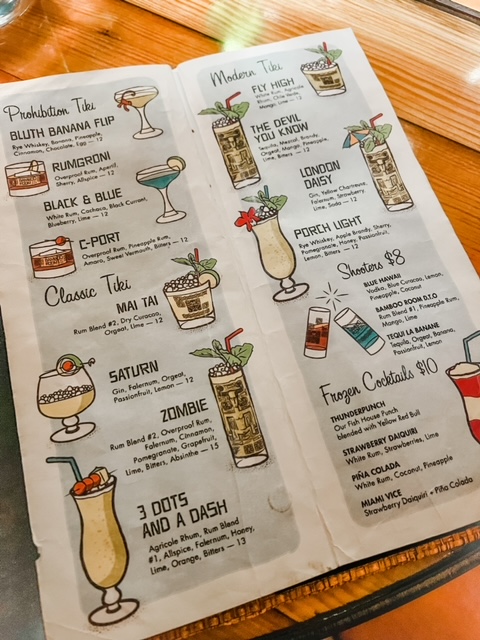 Prohibition Tiki
BLUTH BANANA FLIP
Rye Whiskey, Banana, Pineapple,
Cinnamon, Chocolate, Egg — 12
RUMGRONI
Overproof Rum, Aperitif,
Sherry, Allspice — 12
BLACK & BLUE
White Rum, Cachaca, Black Currant,
Blueberry, Lime — 12
C-PORT
Overproof Rum, Pineapple Rum,
Amaro, Sweet Vermouth, Bitters — 12
Classic Tiki
MAI TAI
Rum Blend #2, Dry Curacao,
Orgeat, Lime — 12
SATURN
Gin, Falernum, Orgeat,
Passionfruit, Lemon — 12
ZOMBIE
Rum Blend #2, Overproof Rum,
Falernum, Cinnamon,
Pomegranate, Grapefruit,
Lime, Bitters, Absinthe — 15
3 DOTS
AND A DASH
Agricole Rhum, Rum Blend
#1, Allspice, Falernum, Honey,
Lime, Orange, Bitters — 13
Modern Tiki
FLY HIGH
White Rum, Agricole
Rhum, Chile
Mango, Lime — 12
THE DEVIL
YOU KNOW
Tequila, Mezcal, Brandy,
Orgeat, Mango, Pineapple,
Lime, Bitters — 12
LONDON
DAISY
Gin, Yellow Chartreuse,
Falernum, Strawberry,
Lime, Soda — 12
PORCH LIGHT
Rye Whiskey, Apple Brandy, Sherry,
Pomegranate, Honey, Passionfruit,
Lemon, Bitters — 12
Shooters $8
BLUE HAWAII
Vodka, Blue Curacao, Lemon,
Pineapple, Coconut
BAMBOO ROOM D.T.O
Rum Blend #1, Pineapple Rum,
Mango, Lime
TEQUI LA BANANE
Tequila, Orgeat, Banana,
Passionfruit, Lemon
Frozen Cocktails $10
THUNDERPUNCH
Our Fish House Punch
blended with Yellow Red Bull
STRAWBERRY DAIQUIRI
White Rum, Strawberries, Lime
PIÑA COLADA
White Rum, Coconut, Pineapple
MIAMI VICE
Strawberry Daiquiri + Piña Colada